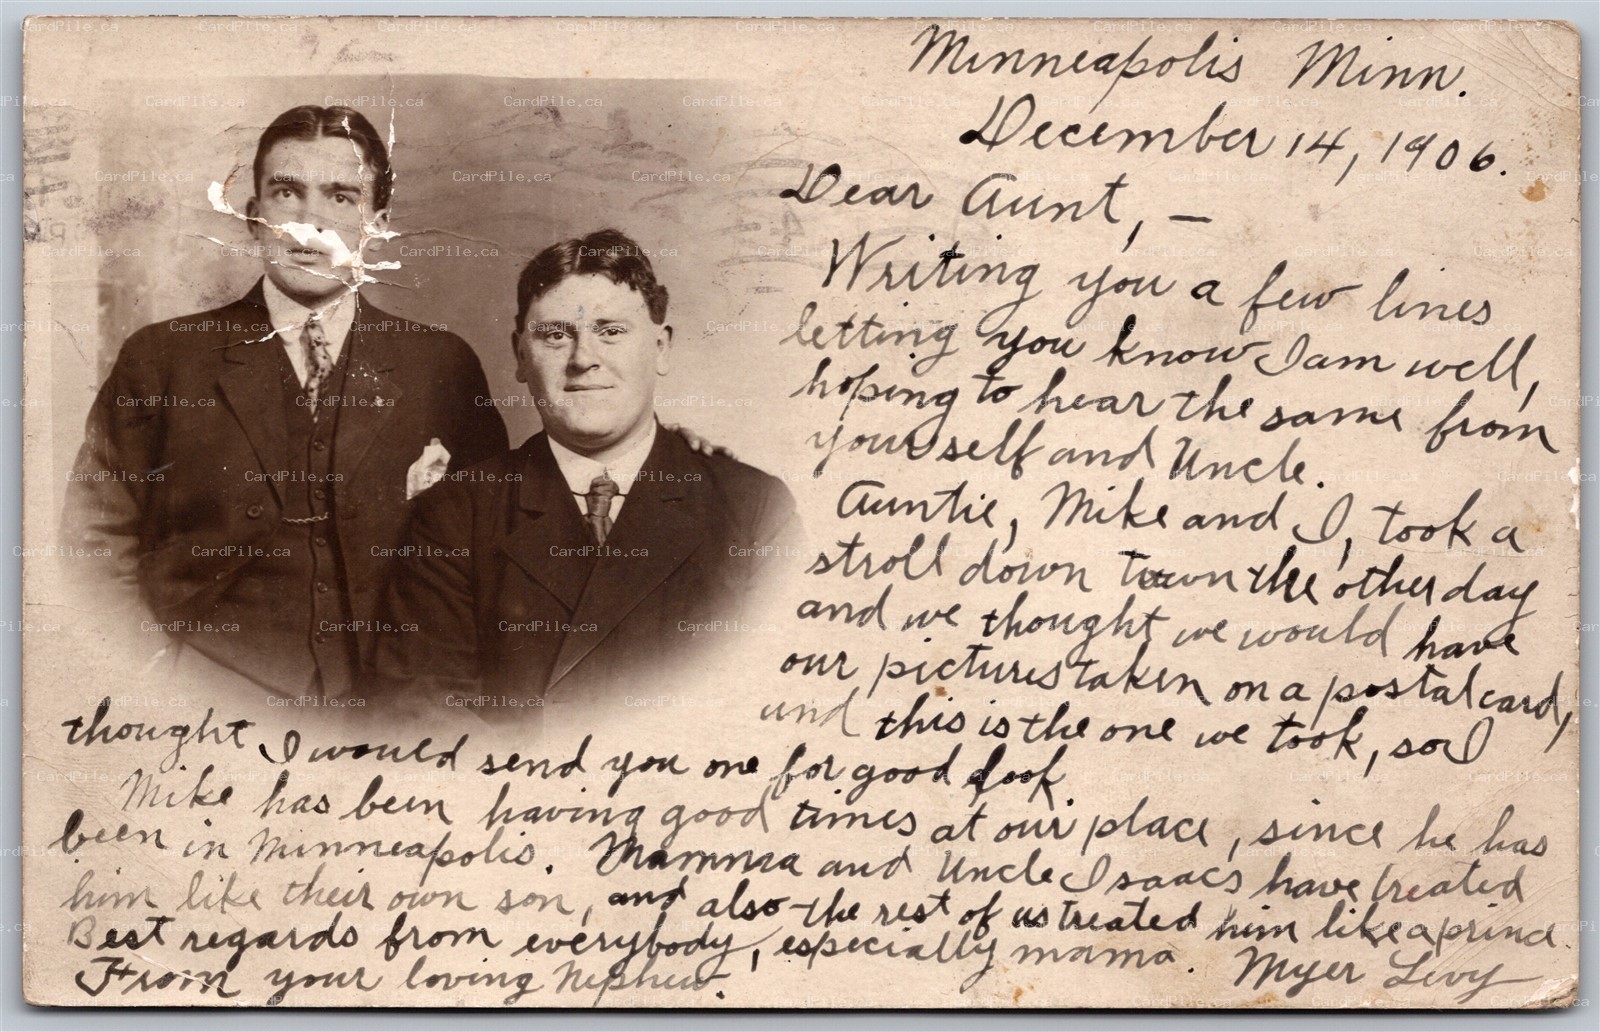 Minneapolis Minn.
December 14, 1906.
Dear Aunt, —
Writing you a few lines
letting you know I am well,
hoping to hear the same from
yourself and Uncle.
Auntie, Mike and I, took a
stroll down town the other day
and we thought we would have
our pictures taken on a postal card,
and this is the one we took, so I
thought I would send you one for good look
Mike has been having good times at our place, since he has
been in Minneapolis. Mamma and Uncle Isaacs have treated
him like their own son, and also the rest of us treated him like a prince
Best regards from everybody, especially mama.
From your loving Nephew. Myer Levy
CardPile.ca